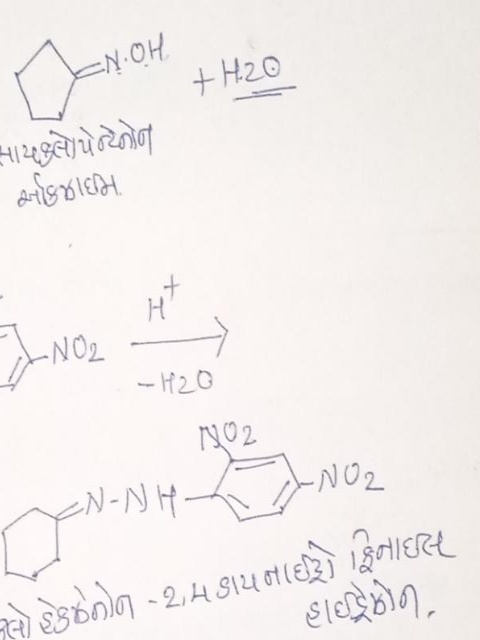 =N.OH + H2O
સાયક્લોપેન્ટેનોન
ઓક્ઝાઇમ.
H+
-NO2
-H2O
NO2
=N-NH- -NO2
ક્લો હેક્ઝેનોન - 2,4 ડાયનાઈટ્રો ફિનાઇલ
હાઈડ્રેઝોન.